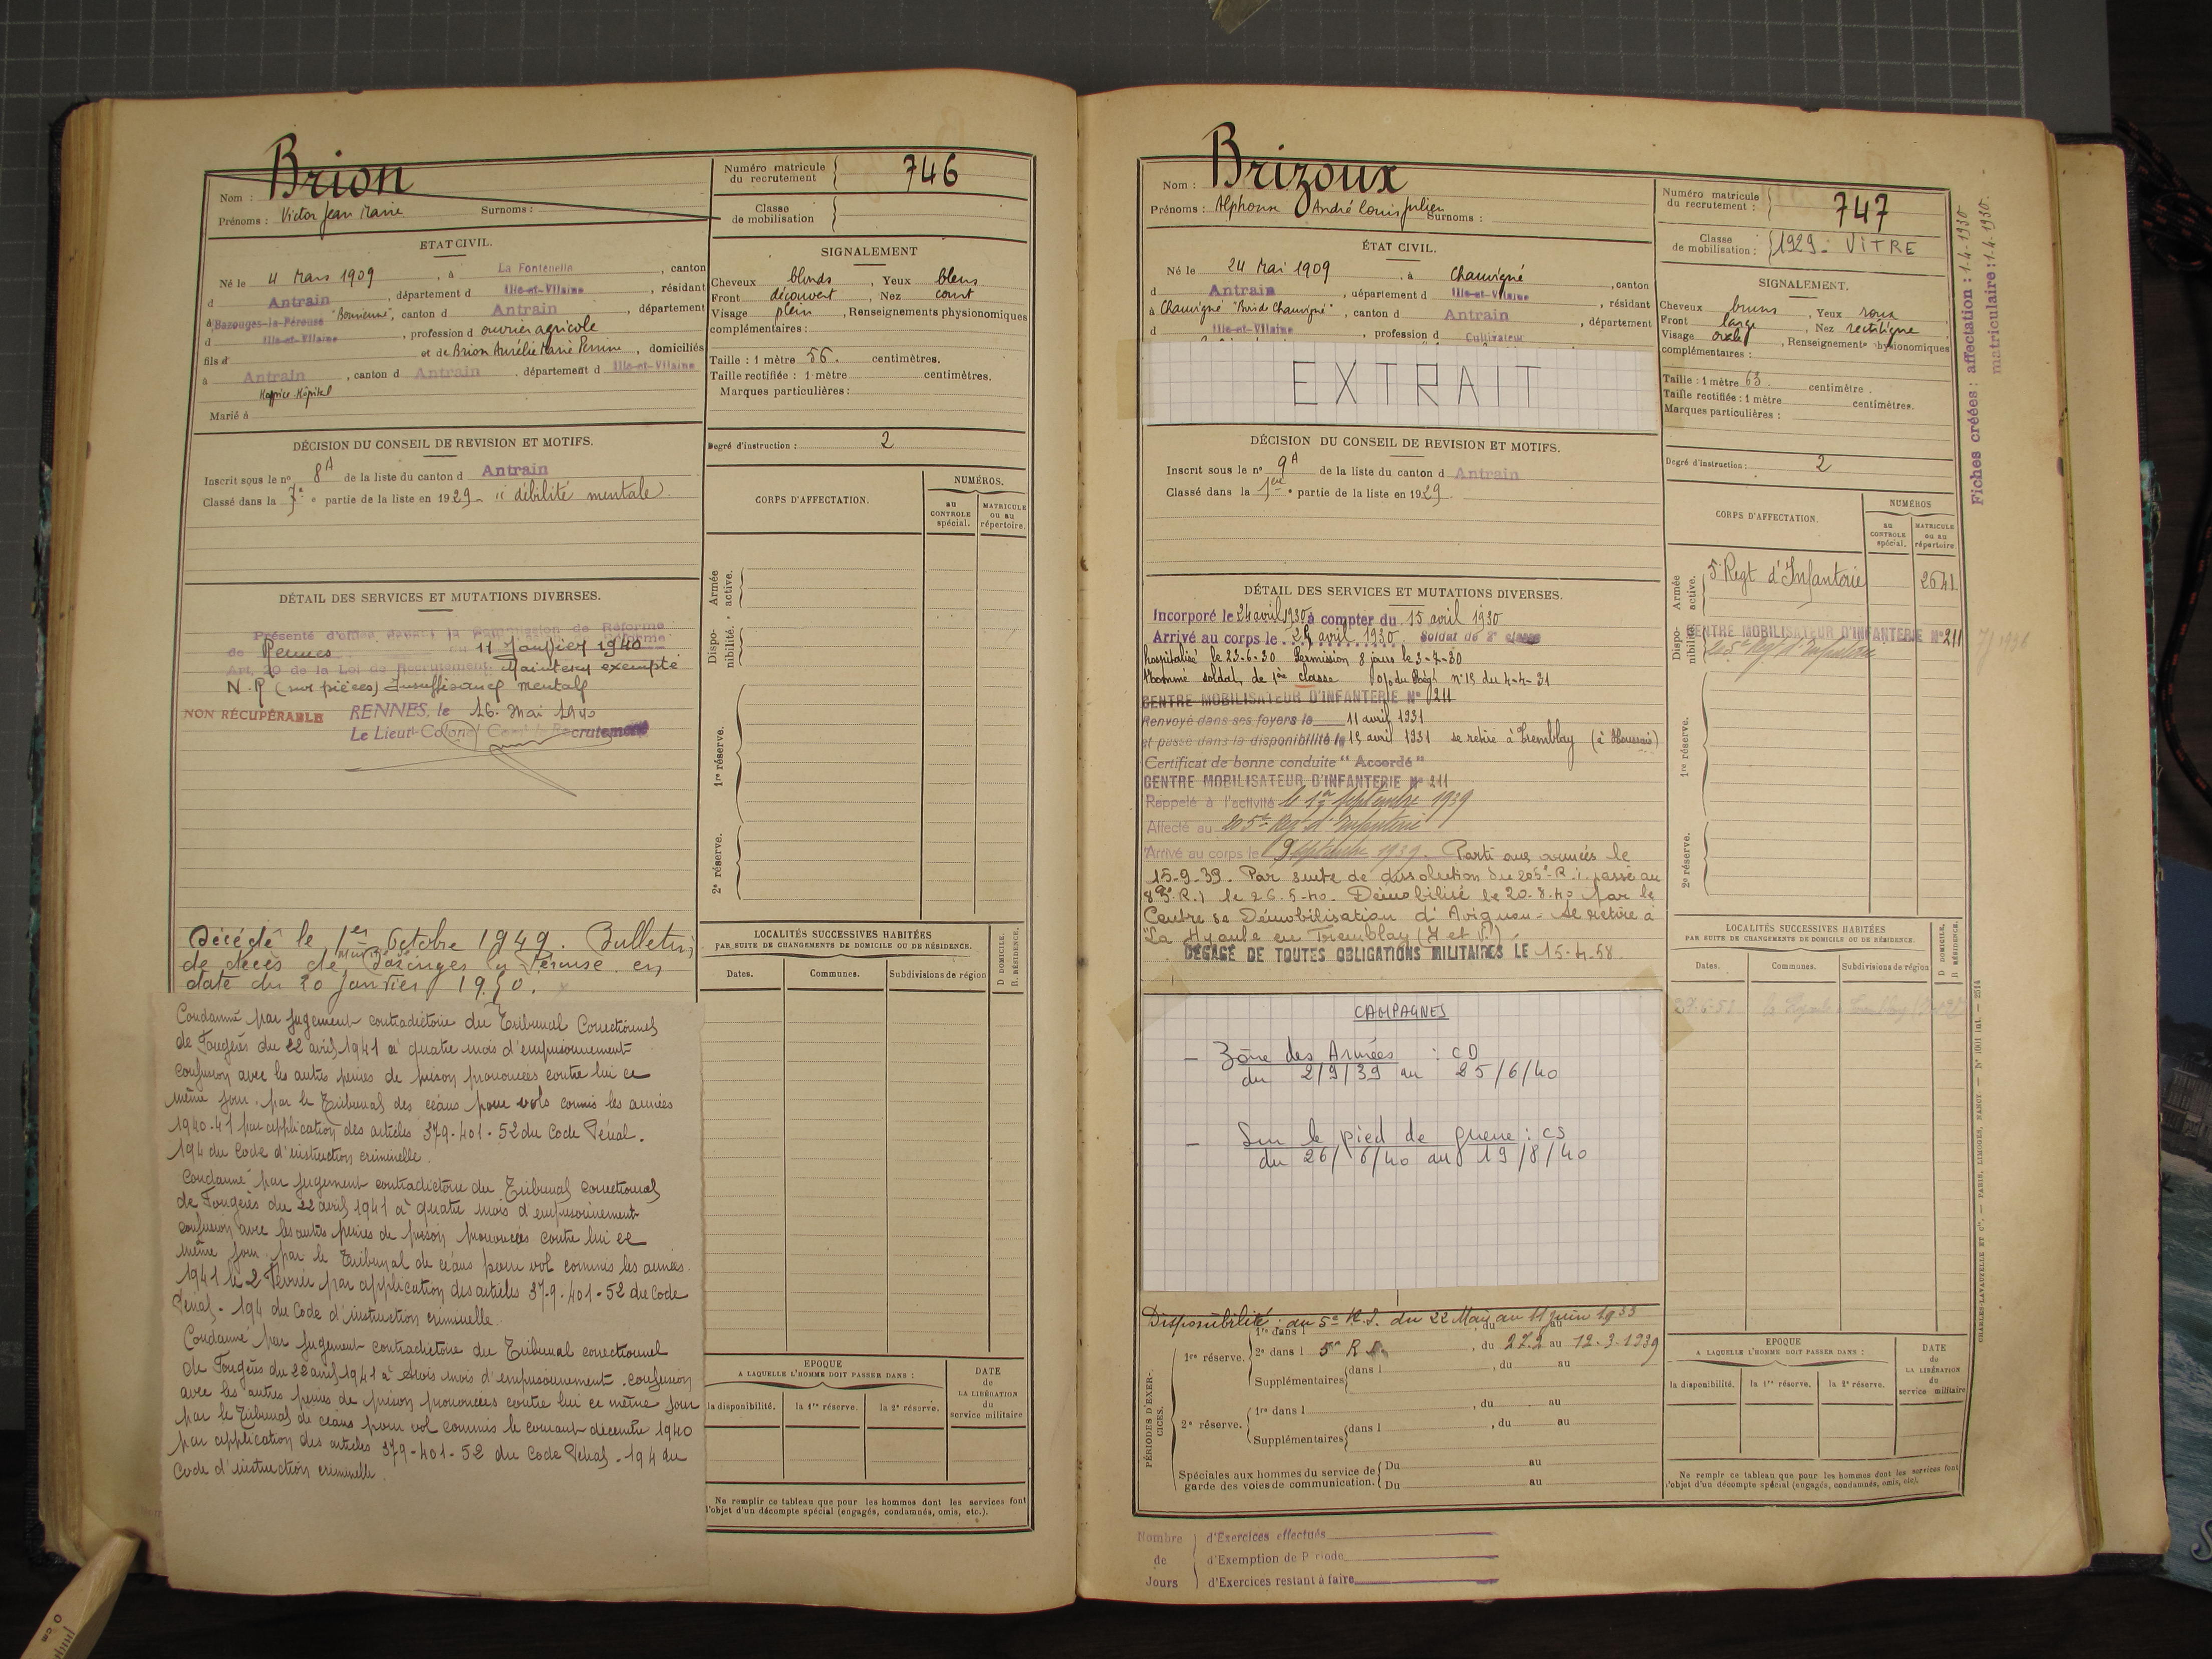 Nom : Brion
Prénoms : Victor Jean Marie Surnoms :
ETAT CIVIL.
Né le 4 Mars 1909, à La Fontenelle, canton
d Antrain, département d Ille-et-Vilaine, résidant
à Bazouges-la-Pérouse, canton d Antrain, département
d Ille-et-Vilaine, profession d ouvrier agricole
fils d et de Brion Aurélie Marie Perrine, domiciliés
à Antrain, canton d Antrain, département d Ille-et-Vilaine
Hospice Hôpital
Marié à
DÉCISION DU CONSEIL DE REVISION ET MOTIFS.
Inscrit sous le nº 8A de la liste du canton d Antrain
Classé dans la 7e partie de la liste en 1929 - (débilité mentale)
DÉTAIL DES SERVICES ET MUTATIONS DIVERSES.
Présenté d'office devant la Commission de Réforme
de Rennes du 11 Janvier 1940
Art. 20 de la Loi de Recrutement. Maintenu exempté
N. R (sur pièces) Insuffisance mentale
NON RÉCUPÉRABLE RENNES, le 16 Mai 1940
Le Lieut-Colonel Com' le Recrutement
Décédé le 1er Octobre 1949. Bulletin
de décès de Mairie Bazouges la Pérouse en
date du 20 Janvier 1950.
Condamné par jugement contradictoire du Tribunal Correctionnel
de Fougères du 22 avril 1941 à quatre mois d'emprisonnement
confusion avec les autres peines de prison prononcées contre lui ce
même jour, par le Tribunal des céans pour vols commis les années
1940-41 par application des articles 379-401-52 du Code Pénal.
194 du Code d'instruction criminelle.
Condamné par jugement contradictoire du Tribunal correctionnel
de Fougères du 22 avril 1941 à quatre mois d'emprisonnement
confusion avec les autres peines de prison prononcées contre lui ce
même jour par le Tribunal de céans pour vol commis les années
1941 le 2 Février par application des articles 379-401-52 du Code
Pénal - 194 du Code d'instruction criminelle.
Condamné par jugement contradictoire du Tribunal correctionnel
de Fougères du 22 avril 1941 à trois mois d'emprisonnement confusion
avec les autres peines de prison prononcées contre lui ce même jour
par le Tribunal de céans pour vol commis le courant décembre 1940
par application des articles 379-401-52 du Code Pénal - 194 du
Code d'instruction criminelle.
Numéro matricule du recrutement 746
Classe de mobilisation
SIGNALEMENT
Cheveux blonds, Yeux bleus
Front découvert, Nez court
Visage plein, Renseignements physionomiques
complémentaires :
Taille : 1 mètre 56. centimètres.
Taille rectifiée : 1 mètre centimètres.
Marques particulières :
Degré d'instruction : 2
CORPS D'AFFECTATION.
NUMÉROS.
au CONTROLE spécial.
MATRICULE ou au répertoire.
Armée active.
Disponibilité.
1re réserve.
2e réserve.
LOCALITÉS SUCCESSIVES HABITÉES
PAR SUITE DE CHANGEMENTS DE DOMICILE OU DE RÉSIDENCE.
Dates. Communes. Subdivisions de région
D DOMICILE. R. RÉSIDENCE.
EPOQUE
A LAQUELLE L'HOMME DOIT PASSER DANS :
la disponibilité. la 1re réserve. la 2e réserve.
DATE de LA LIBÉRATION du service militaire
Ne remplir ce tableau que pour les hommes dont les services font
l'objet d'un décompte spécial (engagés, condamnés, omis, etc.).
Nom : Brizoux
Prénoms : Alphonse André Louis Julien Surnoms :
ÉTAT CIVIL.
Né le 24 Mai 1909, à Chauvigné, canton
d Antrain, département d Ille-et-Vilaine, résidant
à Chauvigné "Bas de Chauvigné", canton d Antrain, département
d Ille-et-Vilaine, profession d Cultivateur
EXTRAIT
DÉCISION DU CONSEIL DE REVISION ET MOTIFS.
Inscrit sous le nº 9A de la liste du canton d Antrain
Classé dans la 1ère partie de la liste en 1929.
DÉTAIL DES SERVICES ET MUTATIONS DIVERSES.
Incorporé le 24 avril 1930 à compter du 15 avril 1930
Arrivé au corps le 24 avril 1930. Soldat de 2e classe
hospitalisé le 23-6-30 Permission 8 jours le 3-7-30
Nommé soldat de 1ère classe o/o du Régt nº 15 du 4-4-31
CENTRE MOBILISATEUR D'INFANTERIE Nº 211
Renvoyé dans ses foyers le 11 avril 1931
et passé dans la disponibilité le 15 avril 1931 se retire à Tremblay
Certificat de bonne conduite "Accordé"
CENTRE MOBILISATEUR D'INFANTERIE Nº 211
Rappelé à l'activité le 1er septembre 1939
Affecté au 205e Régt d'Infanterie
Arrivé au corps le 9 septembre 1939. Parti aux armées le
15-9-39. Par suite de dissolution du 205e R.I. passé au
R.I le 26.5.40. Démobilisé le 20.8.40 par le
Centre de Démobilisation d'Avignon - Se retire à
"La Hyaule en Tremblay (I et V.)
DÉGAGÉ DE TOUTES OBLIGATIONS MILITAIRES LE 15-4-58
CAMPAGNES
- Zône des Armées : CD
du 2/9/39 au 25/6/40
- Sur le pied de guerre : CS
du 26/6/40 au 19/8/40
Disponibilité : au 5e R.I. du 22 Mai au 11 juin 1933
PÉRIODES D'EXERCICES.
1re réserve.
1re dans l , du au
2e dans l 5e R.I. , du 27.2 au 12-3-1939
Supplémentaires dans l , du au
2e réserve.
1re dans l , du au
Supplémentaires dans l , du au
Spéciales aux hommes du service de garde des voies de communication.
Du au
Du au
Nombre de Jours
d'Exercices effectués
d'Exemption de Période
d'Exercices restant à faire
Numéro matricule du recrutement : 747
Classe de mobilisation : 1929 - VITRE
SIGNALEMENT.
Cheveux bruns, Yeux roux
Front large, Nez rectiligne
Visage ovale, Renseignements physionomiques
complémentaires :
Taille : 1 mètre 63. centimètre.
Taille rectifiée : 1 mètre centimètres.
Marques particulières :
Degré d'instruction : 2
CORPS D'AFFECTATION.
NUMÉROS
au CONTROLE spécial.
MATRICULE ou au répertoire
Armée active.
5e Regt d'Infanterie 2641
Disponibilité.
CENTRE MOBILISATEUR D'INFANTERIE Nº 211
205e Rég d'Infanterie
1re réserve.
2e réserve.
LOCALITÉS SUCCESSIVES HABITÉES
PAR SUITE DE CHANGEMENTS DE DOMICILE OU DE RÉSIDENCE.
Dates. Communes. Subdivisions de région
D DOMICILE, R RÉSIDENCE,
EPOQUE
A LAQUELLE L'HOMME DOIT PASSER DANS :
la disponibilité. la 1re réserve. la 2e réserve.
DATE de LA LIBÉRATION du service militaire
Ne remplir ce tableau que pour les hommes dont les services font
l'objet d'un décompte spécial (engagés, condamnés, omis, etc).
Fiches créées : affectation : 1.4.1930
matriculaire : 1.4.1930.
CHARLES-LAVAUZELLE ET Cie. — PARIS, LIMOGES, NANCY. — Nº 1001 int. — 2514